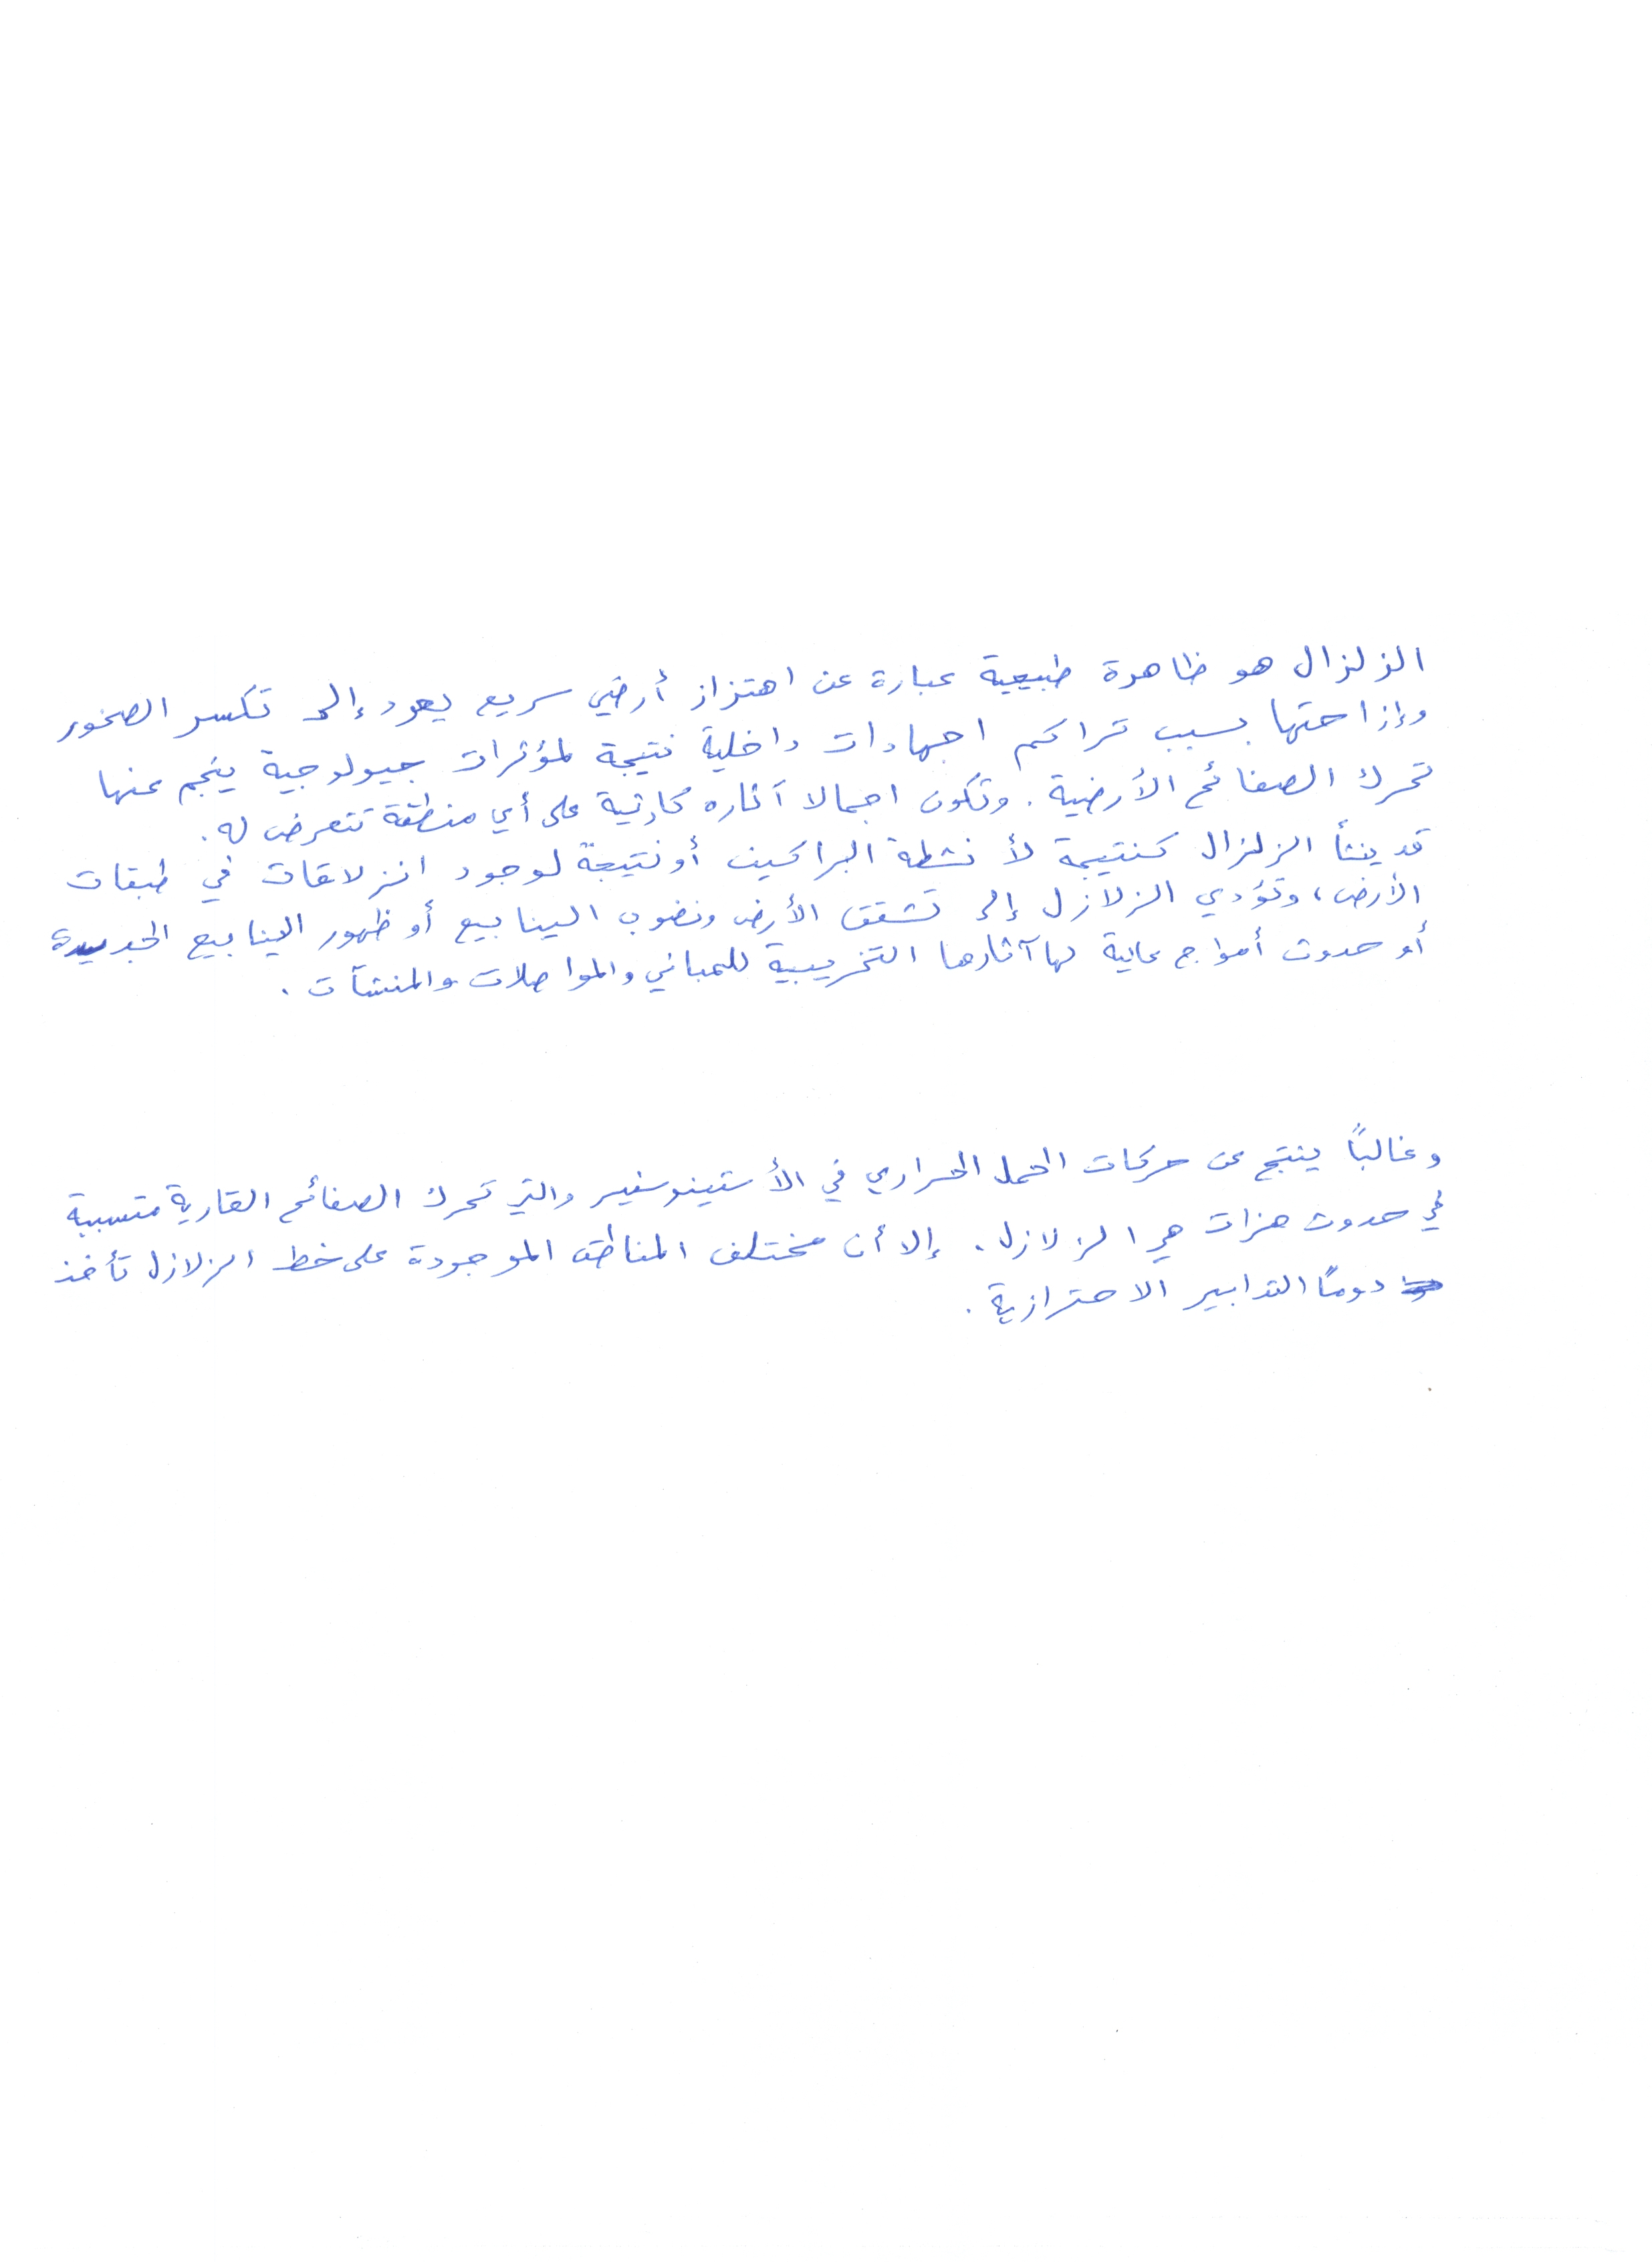 الزلزال هو ظاهرة طبيعية عبارة عن اهتزاز أرضي سريع يعود إلى تكسر الصخور
وإزاحتها بسبب تراكم اجهادات داخلية نتيجة لمؤثرات جيولوجية ينجم عنها
تحرك الصفائح الأرضية. وتكون اجمالا آثاره كارثية على أي منطقة تتعرض له.
قد ينشأ الزلزال كنتيجة لأنشطة البراكين أو نتيجة لوجود انزلاقات في طبقات
الأرض، وتؤدي الزلازل إلى تشقق الأرض ونضوب الينابيع أو ظهور الينابيع الجديدة
أو حدوث أمواج عالية لها آثارها التخريبية للمباني والمواصلات والمنشآت.
وغالبًا ينتج عن حركات الحمل الحراري في الأستينوسفير والتي تحرك الصفائح القارية متسببة
في حدوث هزات هي الزلازل. إلا أن مختلف المناطق الموجودة على خط الزلازل تأخذ
دومًا التدابير الاحترازية.